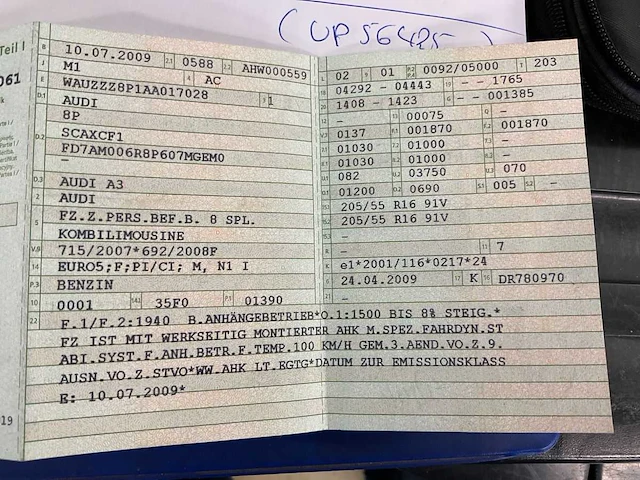 (UP 56425)
Teil I
061
19
B 10.07.2009 2.1 0588 2.2 AHW000559
J M1 4 AC
E WAUZZZ8P1AA017028 3 1
D.1 AUDI
8P
D.2 SCAXCF1
FD7AM006R8P607MGEM0
–
D.3 AUDI A3
2 AUDI
5 FZ.Z.PERS.BEF.B. 8 SPL.
KOMBILIMOUSINE
V.9 715/2007*692/2008F
14 EURO5;F;PI/CI; M, N1 I
P.3 BENZIN
10 0001 14.1 35F0 P.1 01390
L 02 9 01 P.2/P.4 0092/05000 T 203
18 04292 - 04443 19 - - 1765
20 1408 - 1423 G - - 001385
12 - 13 00075 Q -
V.7 0137 F.1 001870 F.2 001870
7.1 01030 7.2 01000 7.3 -
8.1 01030 8.2 01000 8.3 -
U.1 082 U.2 03750 U.3 070
O.1 01200 O.2 0690 S.1 005 S.2 -
15.1 205/55 R16 91V
15.2 205/55 R16 91V
15.3 -
R - 11 7
K e1*2001/116*0217*24
6 24.04.2009 17 K 16 DR780970
21 -
22 F.1/F.2:1940 B.ANHÄNGEBETRIEB*O.1:1500 BIS 8% STEIG.*
FZ IST MIT WERKSEITIG MONTIERTER AHK M.SPEZ.FAHRDYN.ST
ABI.SYST.F.ANH.BETR.F.TEMP.100 KM/H GEM.3.AEND.VO.Z.9.
AUSN.VO.Z.STVO*WW.AHK LT.EGTG*DATUM ZUR EMISSIONSKLASS
E: 10.07.2009*